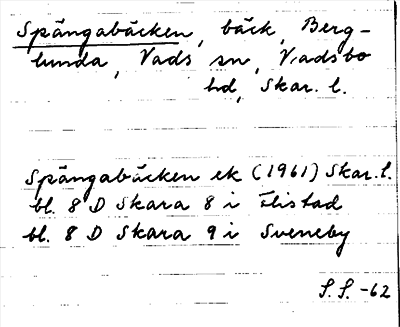 Spångabäcken, bäck, Berg-
lunda, Vads sn, Vadsbo
hd, Skar. l.
Spångabäcken ek (1961) Skar. l.
bl. 8 D Skara 8 i Flistad
bl. 8 D Skara 9 i Sveneby
S.S. -62